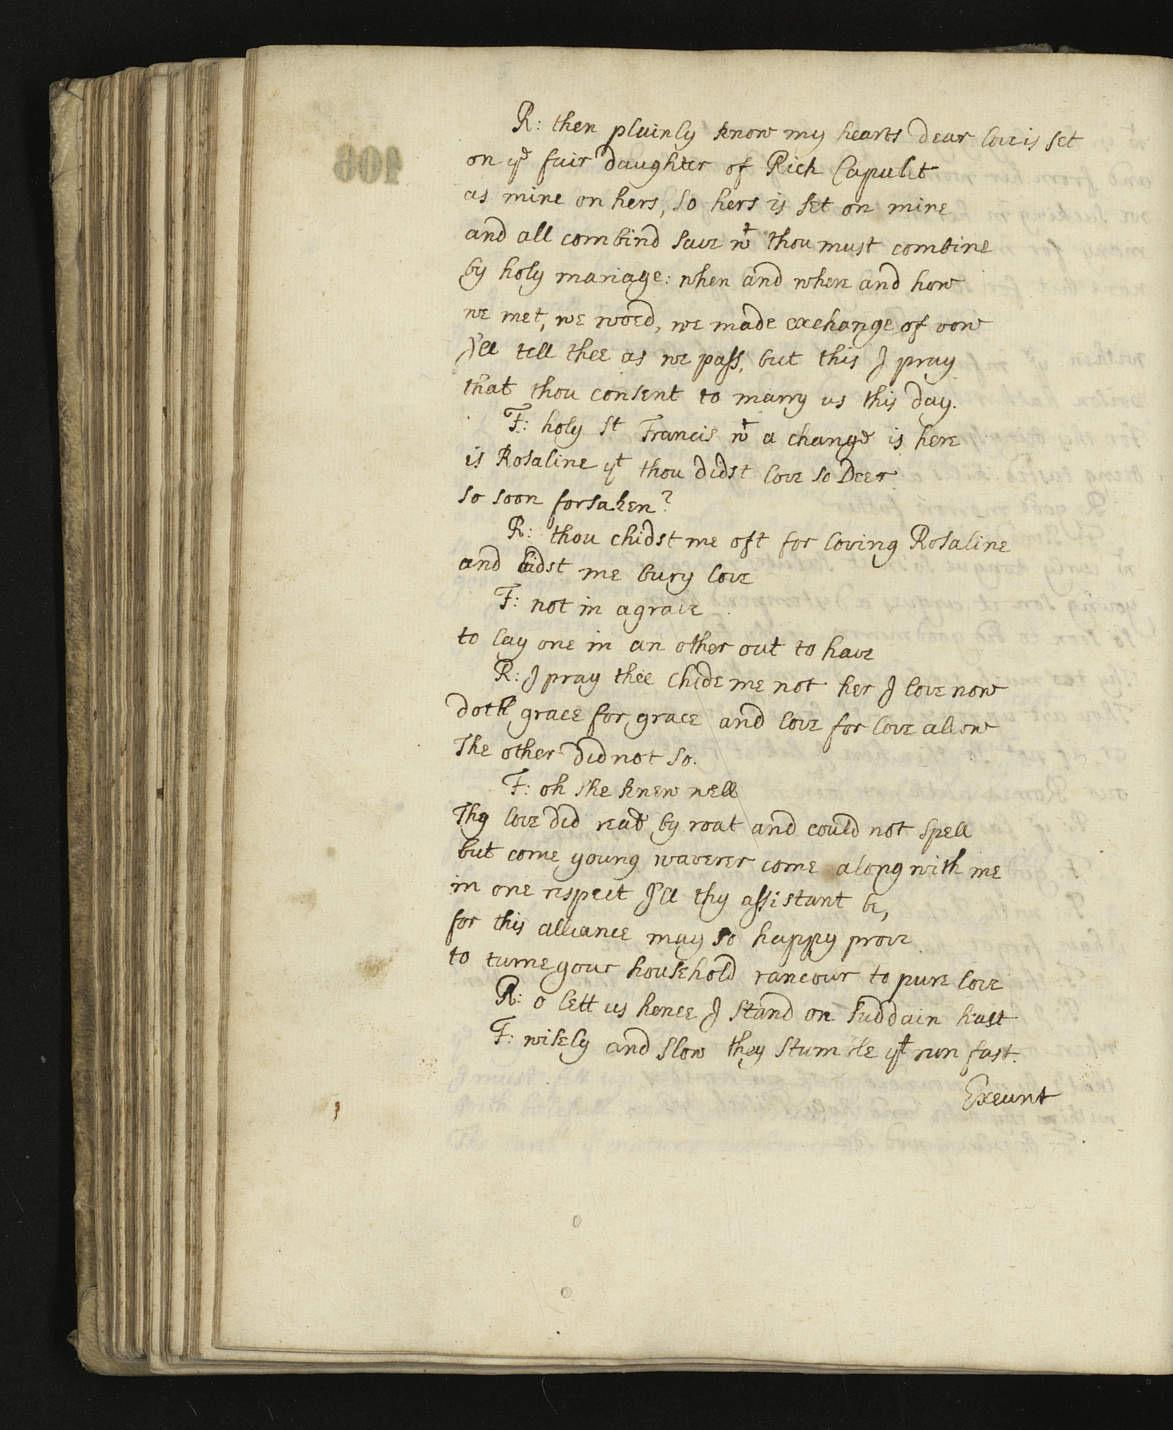 R: then plainly know my hearts dear love is set
on yᵉ fair daughter of Rich Capulet
as mine on hers, so hers is set on mine
and all combind save wᵗ thou must combine
by holy mariage: when and where and how
we met, we woed, we made exchange of vow
I'll tell thee as we pass, but this I pray
that thou consent to marry us this day.
F: holy Sᵗ Francis wᵗ a change is here
is Rosaline yᵗ thou didst love so Deer
so soon forsaken?
R: thou chidst me oft for loving Rosaline
and bidst me bury love
F: not in a grave
to lay one in an other out to have
R: I pray thee chide me not her I love now
doth grace for grace and love for love allow
The other did not so.
F: oh she knew well
Thy love did read by roat and could not spell
but come young waverer come along with me
in one respect I'll thy assistant be,
for this alliance may so happy prove
to turne your household rancour to pure love
R: o lett us hence I stand on suddain hast
F: wisely and slow they stumble yᵗ run fast.
Exeunt
106